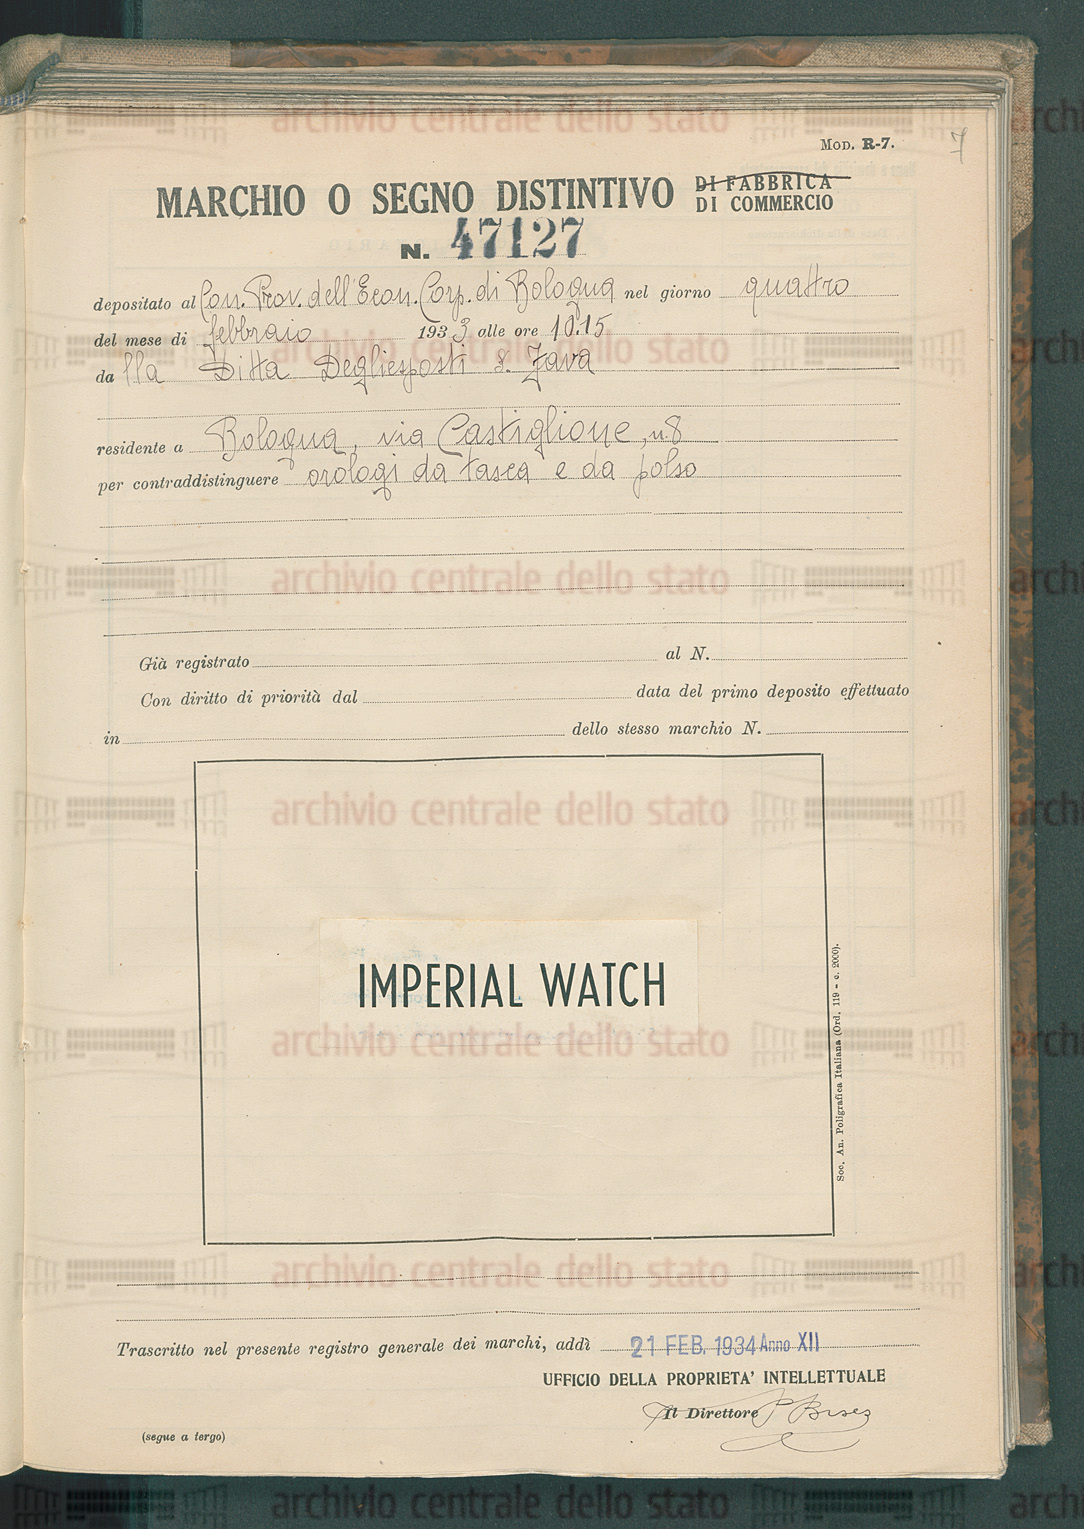 MOD. R-7.
7
MARCHIO O SEGNO DISTINTIVO DI FABBRICA
DI COMMERCIO
N. 47127
depositato al Con. Prov. dell'Econ. Corp. di Bologna nel giorno quattro
del mese di febbraio 1933 alle ore 10.15
da lla Ditta Degliesposti & Zava
residente a Bologna, via Castiglione, n. 8
per contraddistinguere orologi da tasca e da polso
Già registrato al N.
Con diritto di priorità dal data del primo deposito effettuato
in dello stesso marchio N.
IMPERIAL WATCH
Soc. An. Poligrafica Italiana (Ord. 119 - c. 2000).
Trascritto nel presente registro generale dei marchi, addì 21 FEB. 1934 Anno XII
UFFICIO DELLA PROPRIETA' INTELLETTUALE
Il Direttore
(segue a tergo)
archivio centrale dello stato
archivio centrale dello stato
archivio centrale dello stato
archivio centrale dello stato
archivio centrale dello stato
archivio centrale dello stato
archivio centrale dello stato